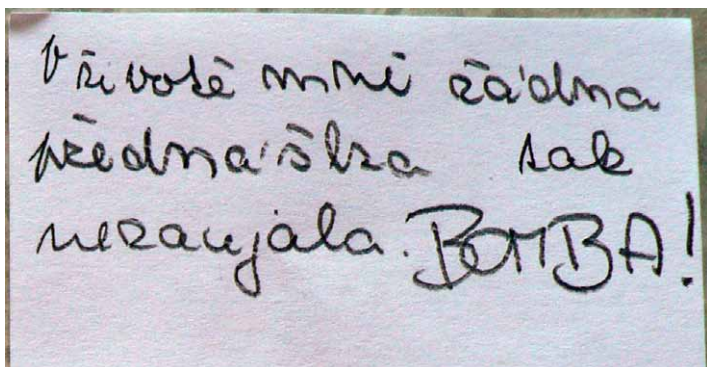 V životě mně žádná
přednáška tak
nezaujala. BOMBA!